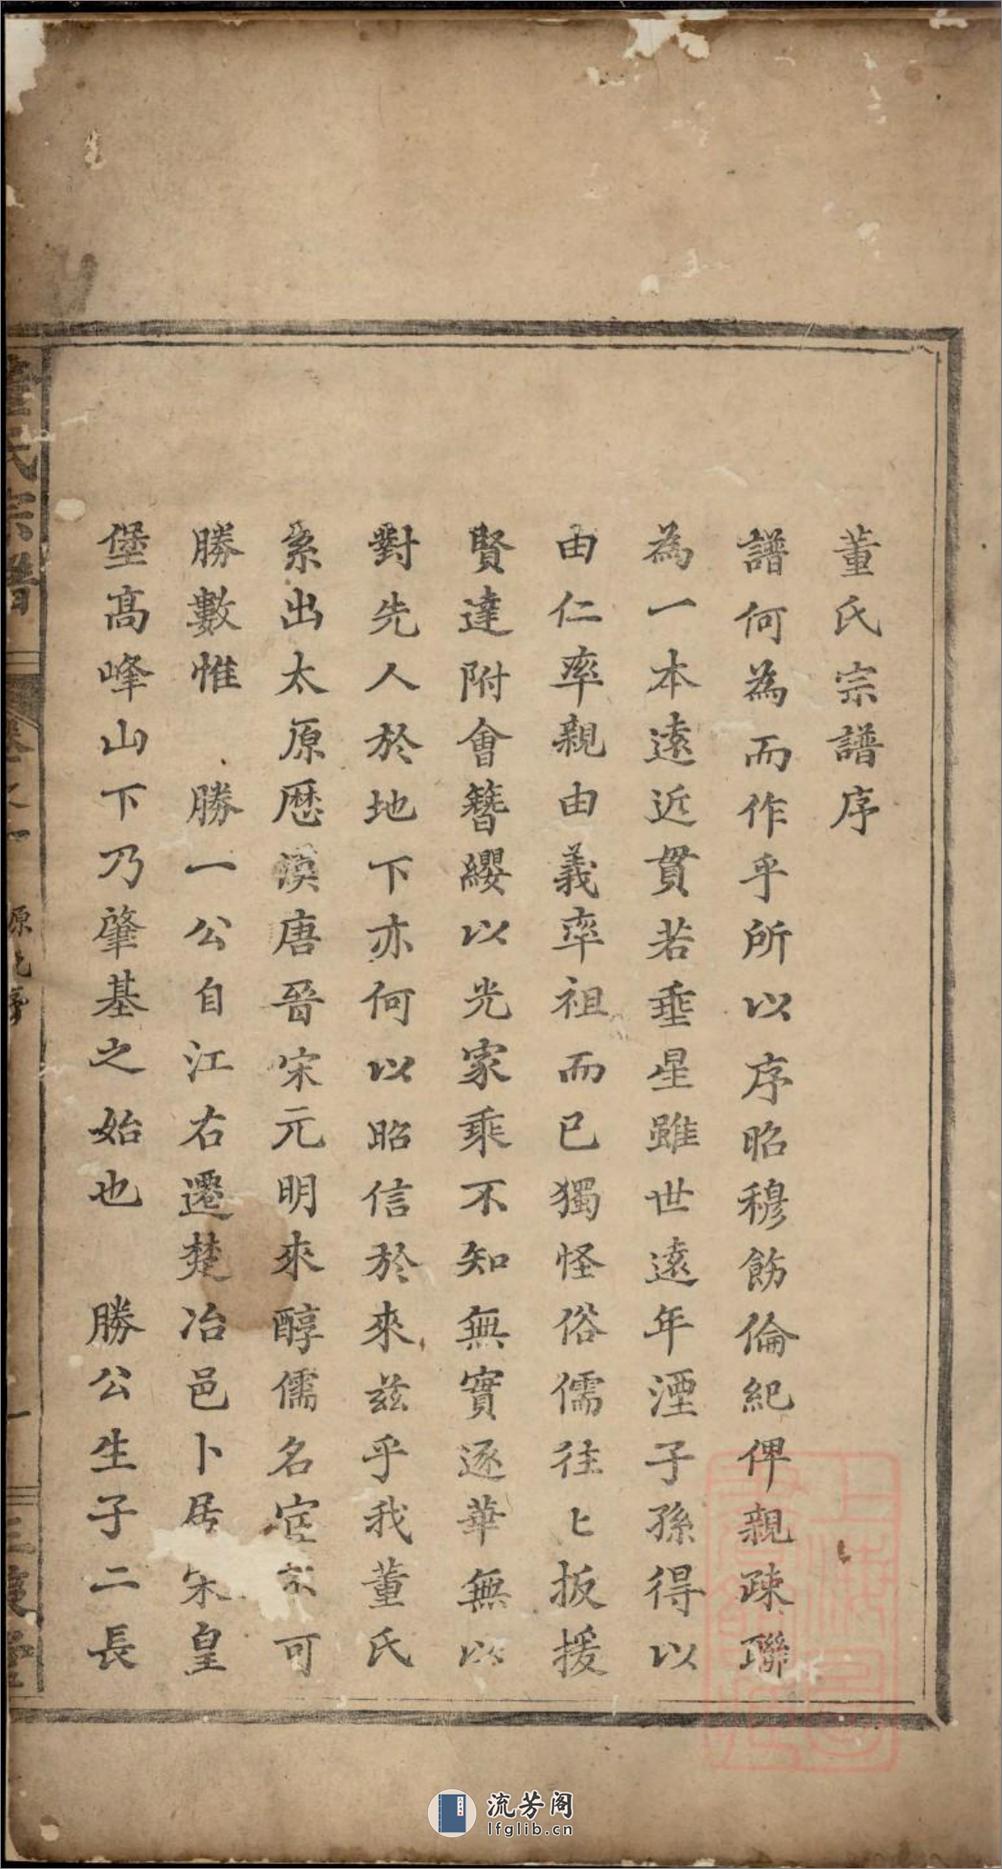 董氏宗譜序
譜何為而作乎所以序昭穆飭倫紀俾親疎聯
為一本遠近貫若垂星雖世遠年湮子孫得以
由仁率親由義率祖而已獨怪俗儒往〻扳援
賢達附會簪纓以光家乘不知無實逐華無以
對先人於地下亦何以昭信於來兹乎我董氏
系出太原厯漢唐晉宋元明來醇儒名宦不可
勝數惟　勝一公自江右遷楚冶邑卜居朱皇
堡高峰山下乃肇基之始也　勝公生子二長
董氏宗譜
卷之一
源流序
一
流芳阁
lfglib.cn